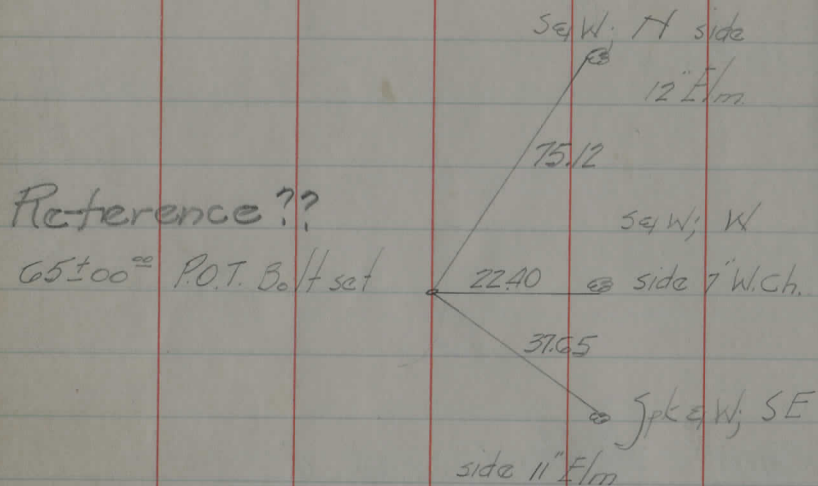 S&W; N side
12" Elm
75.12
Reference??
S&W; W
65+00⁰⁰ P.O.T. Bolt set
22.40
side 7" W.Ch.
37.65
Spk&W; SE
side 11" Elm